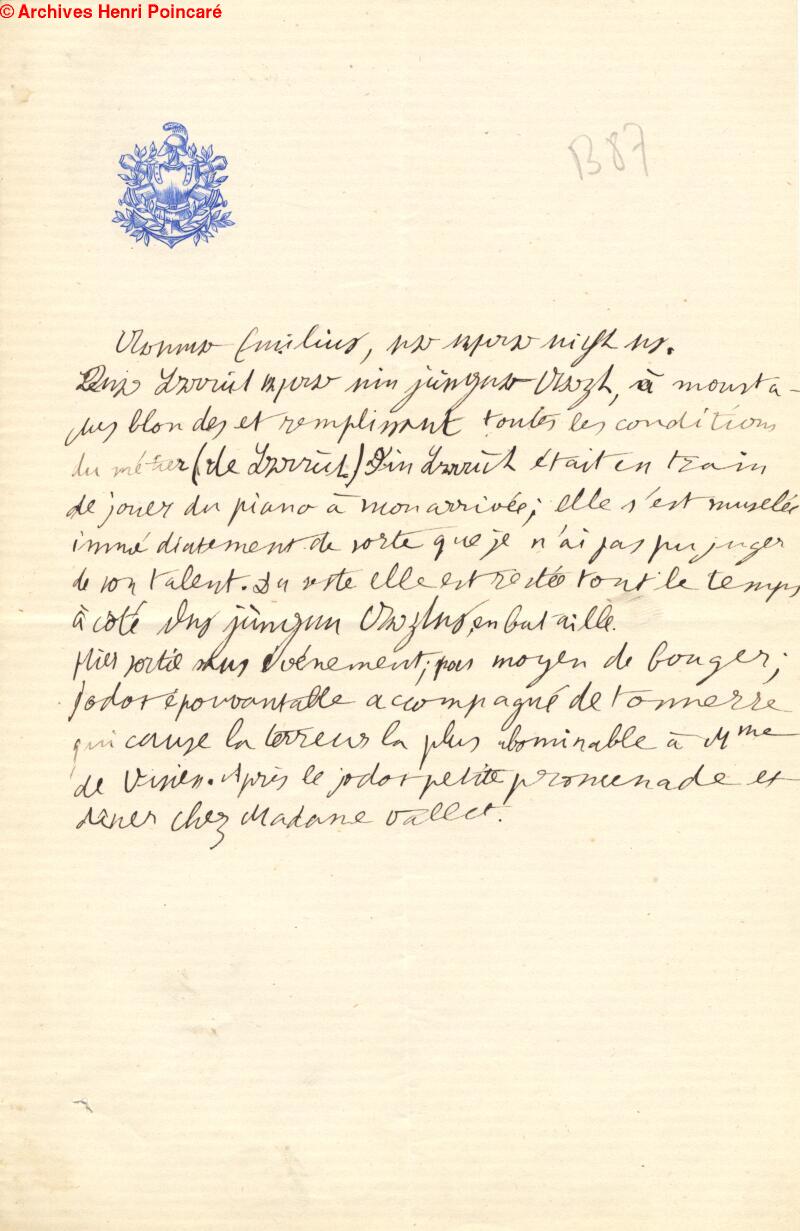 © Archives Henri Poincaré
B87
Emilius, nicht
Braut ein junger Arzt, à mousta-
ches blondes et remplissant toutes les conditions
du métier (de Braut.) Die Braut était en train
de jouer du piano à mon arrivée; elle s'est muselée
immédiatement de sorte que je n'ai pas pu juger
de son talent. Du reste elle est restée tout le temps
à côté des jungen Arztes, en bataille.
Hier sortie sans événement; pas moyen de bouger;
jodot épouvantable accompagné de tonnerre
qui cause la terreur la plus abominable à Mme
de. Après le jodot petite promenade et
dîner chez Madame Vallet.